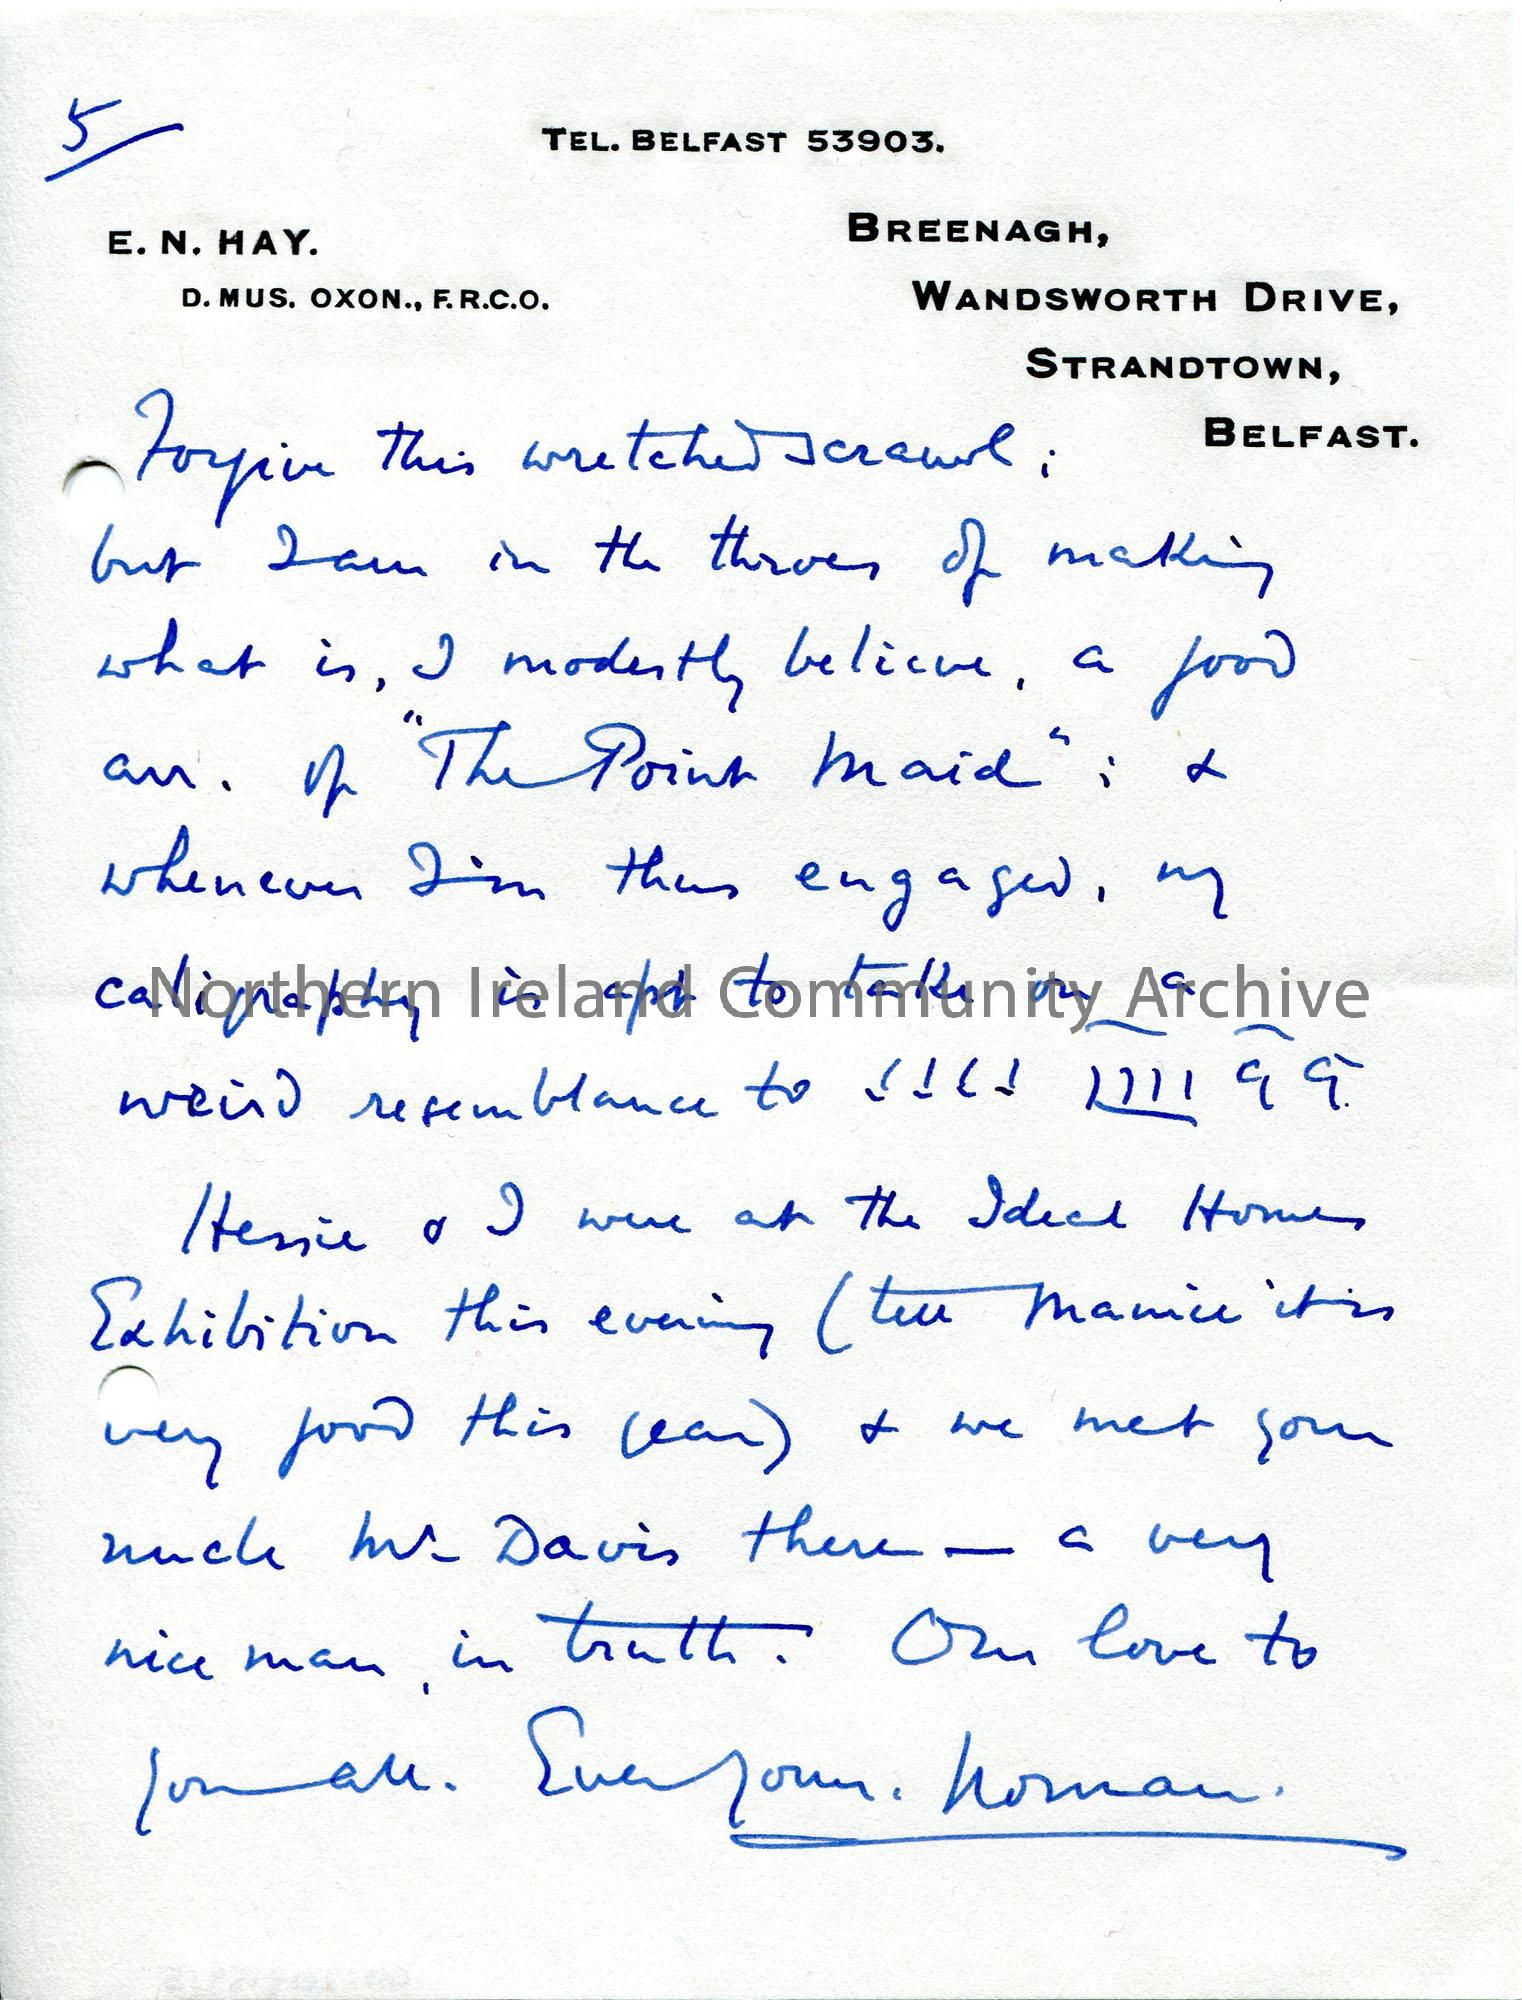 5
TEL. BELFAST 53903.
E. N. HAY.
D. MUS. OXON., F.R.C.O.
BREENAGH,
WANDSWORTH DRIVE,
STRANDTOWN,
BELFAST.
Forgive this wretched scrawl;
but I am in the throes of making
what is, I modestly believe, a good
arr. of "The Point Maid"; &
whenever I'm thus engaged, my
caligraphy is apt to take on a
weird resemblance to
Hessie & I were at the Ideal Homes
Exhibition this evening (tell Maurice it is
very good this year) & we met your
uncle Mr Davis there — a very
nice man, in truth. Our love to
you all. Ever yours. Norman.
Northern Ireland Community Archive